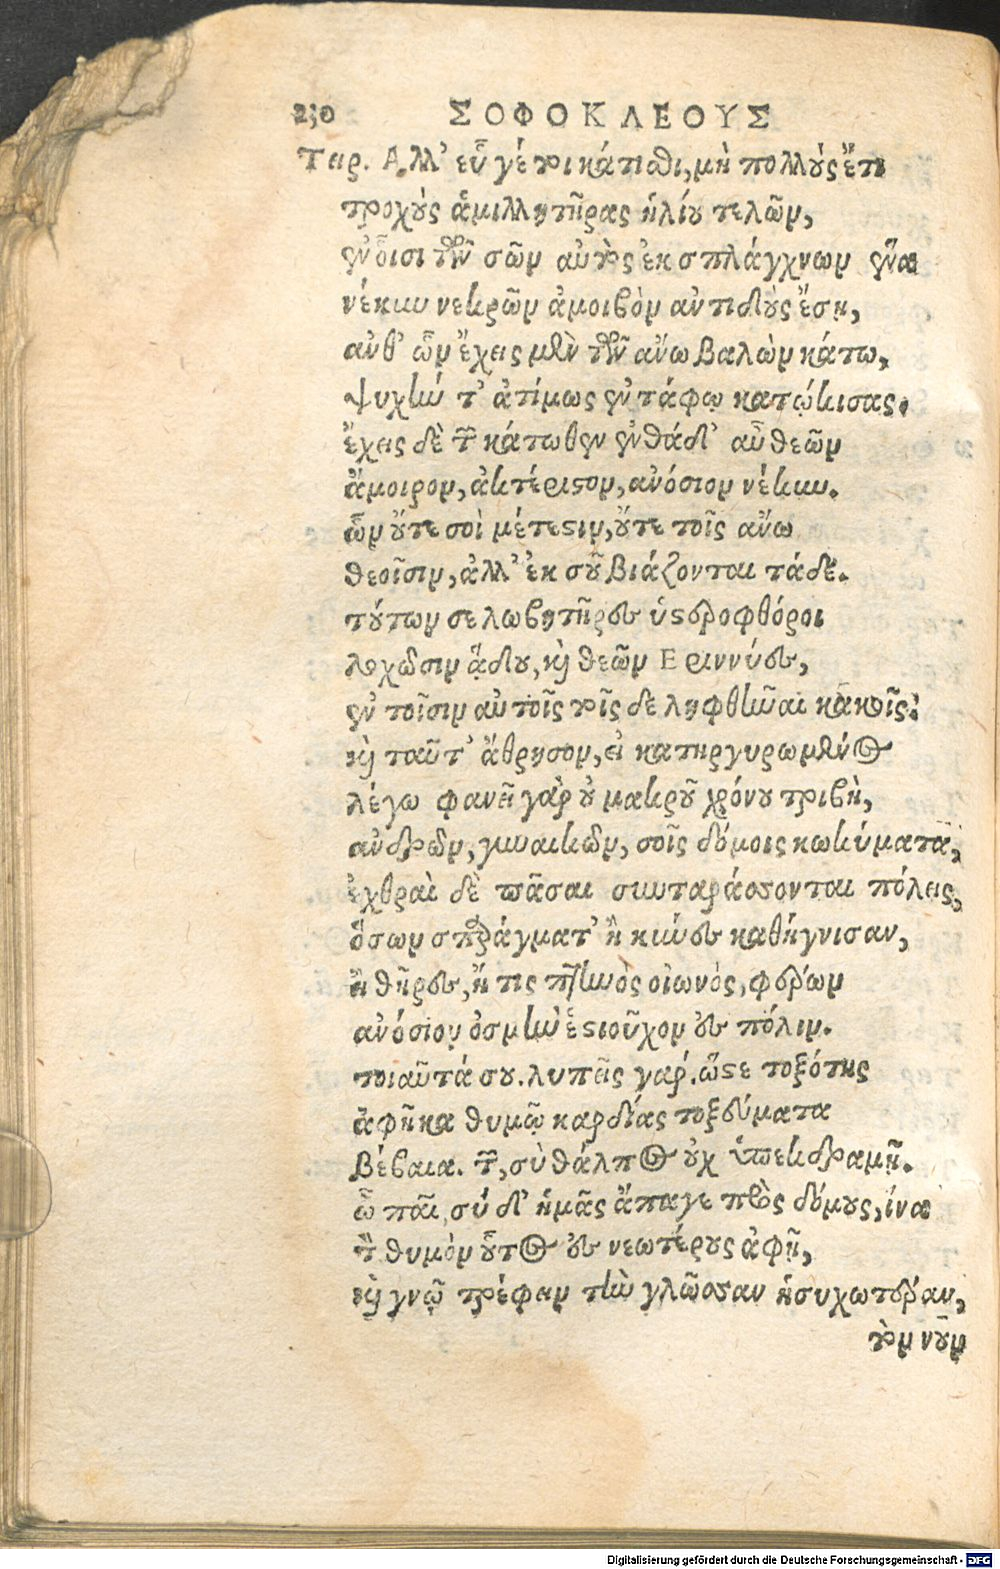 230 ΣΟΦΟΚΛΕΟΥΣ
Τειρ. Ἀλλ' εὖ γέ τοι κάτισθι, μὴ πολλοὺς ἔτι
τροχοὺς ἁμιλλητῆρας ἡλίου τελῶν,
ἐν οἷσι τῶν σῶν αὐτὸς ἐκ σπλάγχνων ἕνα
νέκυν νεκρῶν ἀμοιβὸν ἀντιδοὺς ἔσῃ,
ἀνθ' ὧν ἔχεις μὲν τῶν ἄνω βαλὼν κάτω,
ψυχήν τ' ἀτίμως ἐν τάφῳ κατῴκισας.
ἔχεις δὲ τῶν κάτωθεν ἐνθάδ' αὖ θεῶν
ἄμοιρον, ἀκτέριστον, ἀνόσιον νέκυν.
ὧν οὔτε σοὶ μέτεστιν, οὔτε τοῖς ἄνω
θεοῖσιν, ἀλλ' ἐκ σοῦ βιάζονται τάδε.
τούτων σε λωβητῆρες ὑστεροφθόροι
λοχῶσιν ᾅδου, καὶ θεῶν Ἐριννύες,
ἐν τοῖσιν αὐτοῖς τοῖς δε ληφθῆναι κακοῖς.
καὶ ταῦτ' ἄθρησον, εἰ κατηργυρωμένος
λέγω φανεῖ γὰρ οὐ μακροῦ χρόνου τριβὴ,
ἀνδρῶν, γυναικῶν, σοῖς δόμοις κωκύματα,
ἐχθραὶ δὲ πᾶσαι συνταράσσονται πόλεις,
ὅσων σπαράγματ' ἢ κύνες καθήγνισαν,
ἢ θῆρες, ἤ τις πτηνὸς οἰωνὸς, φέρων
ἀνόσιον ὀσμὴν ἑστιοῦχον ἐς πόλιν.
τοιαῦτά σου. λυπεῖς γάρ. ὥστε τοξότης
ἀφῆκα θυμῷ καρδίας τοξεύματα
βέβαια. τῶν, σὺ θάλπος οὐχ ὑπεκδραμῇ.
ὦ παῖ, σύ δ' ἡμᾶς ἄπαγε πρὸς δόμους, ἵνα
τὸν θυμὸν οὗτος ἐς νεωτέρους ἀφῇ,
καὶ γνῷ τρέφειν τὴν γλῶσσαν ἡσυχωτέραν,
τὸν νοῦν
Digitalisierung gefördert durch die Deutsche Forschungsgemeinschaft - DFG